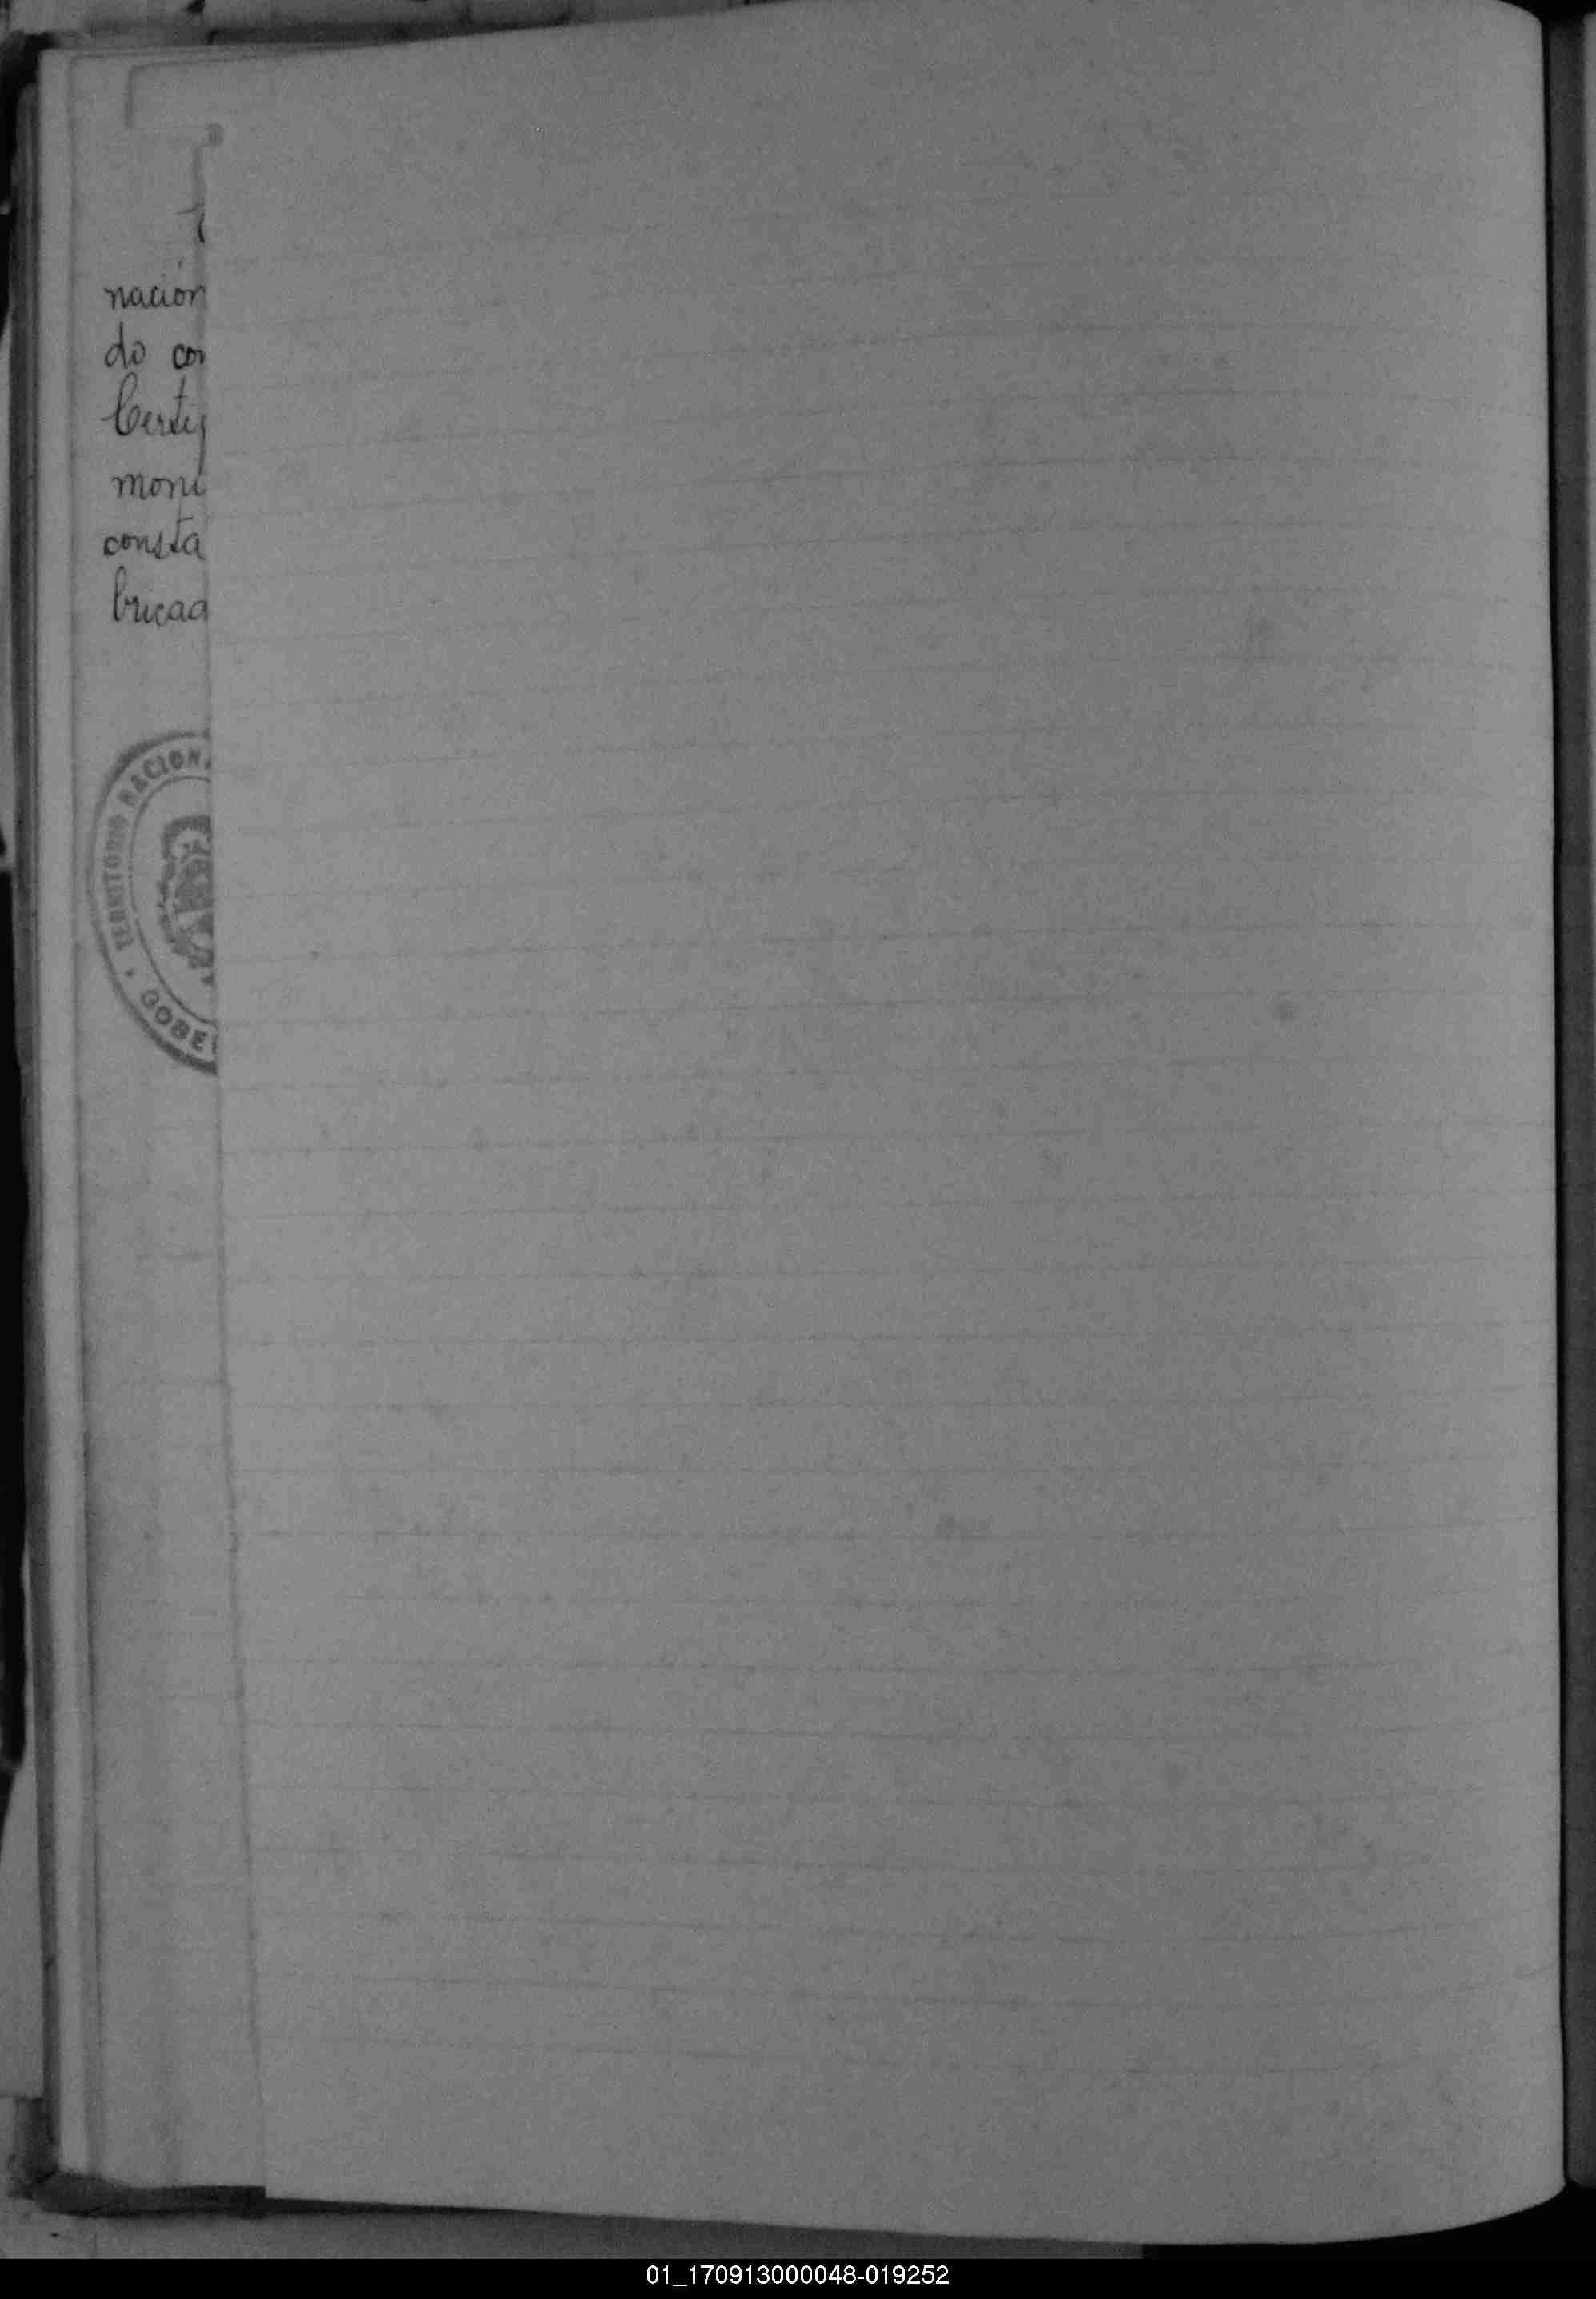 nación
do con
Certif
moni
consta
bricad
TERRITORIO NACIONA
GOBE
01_170913000048-019252